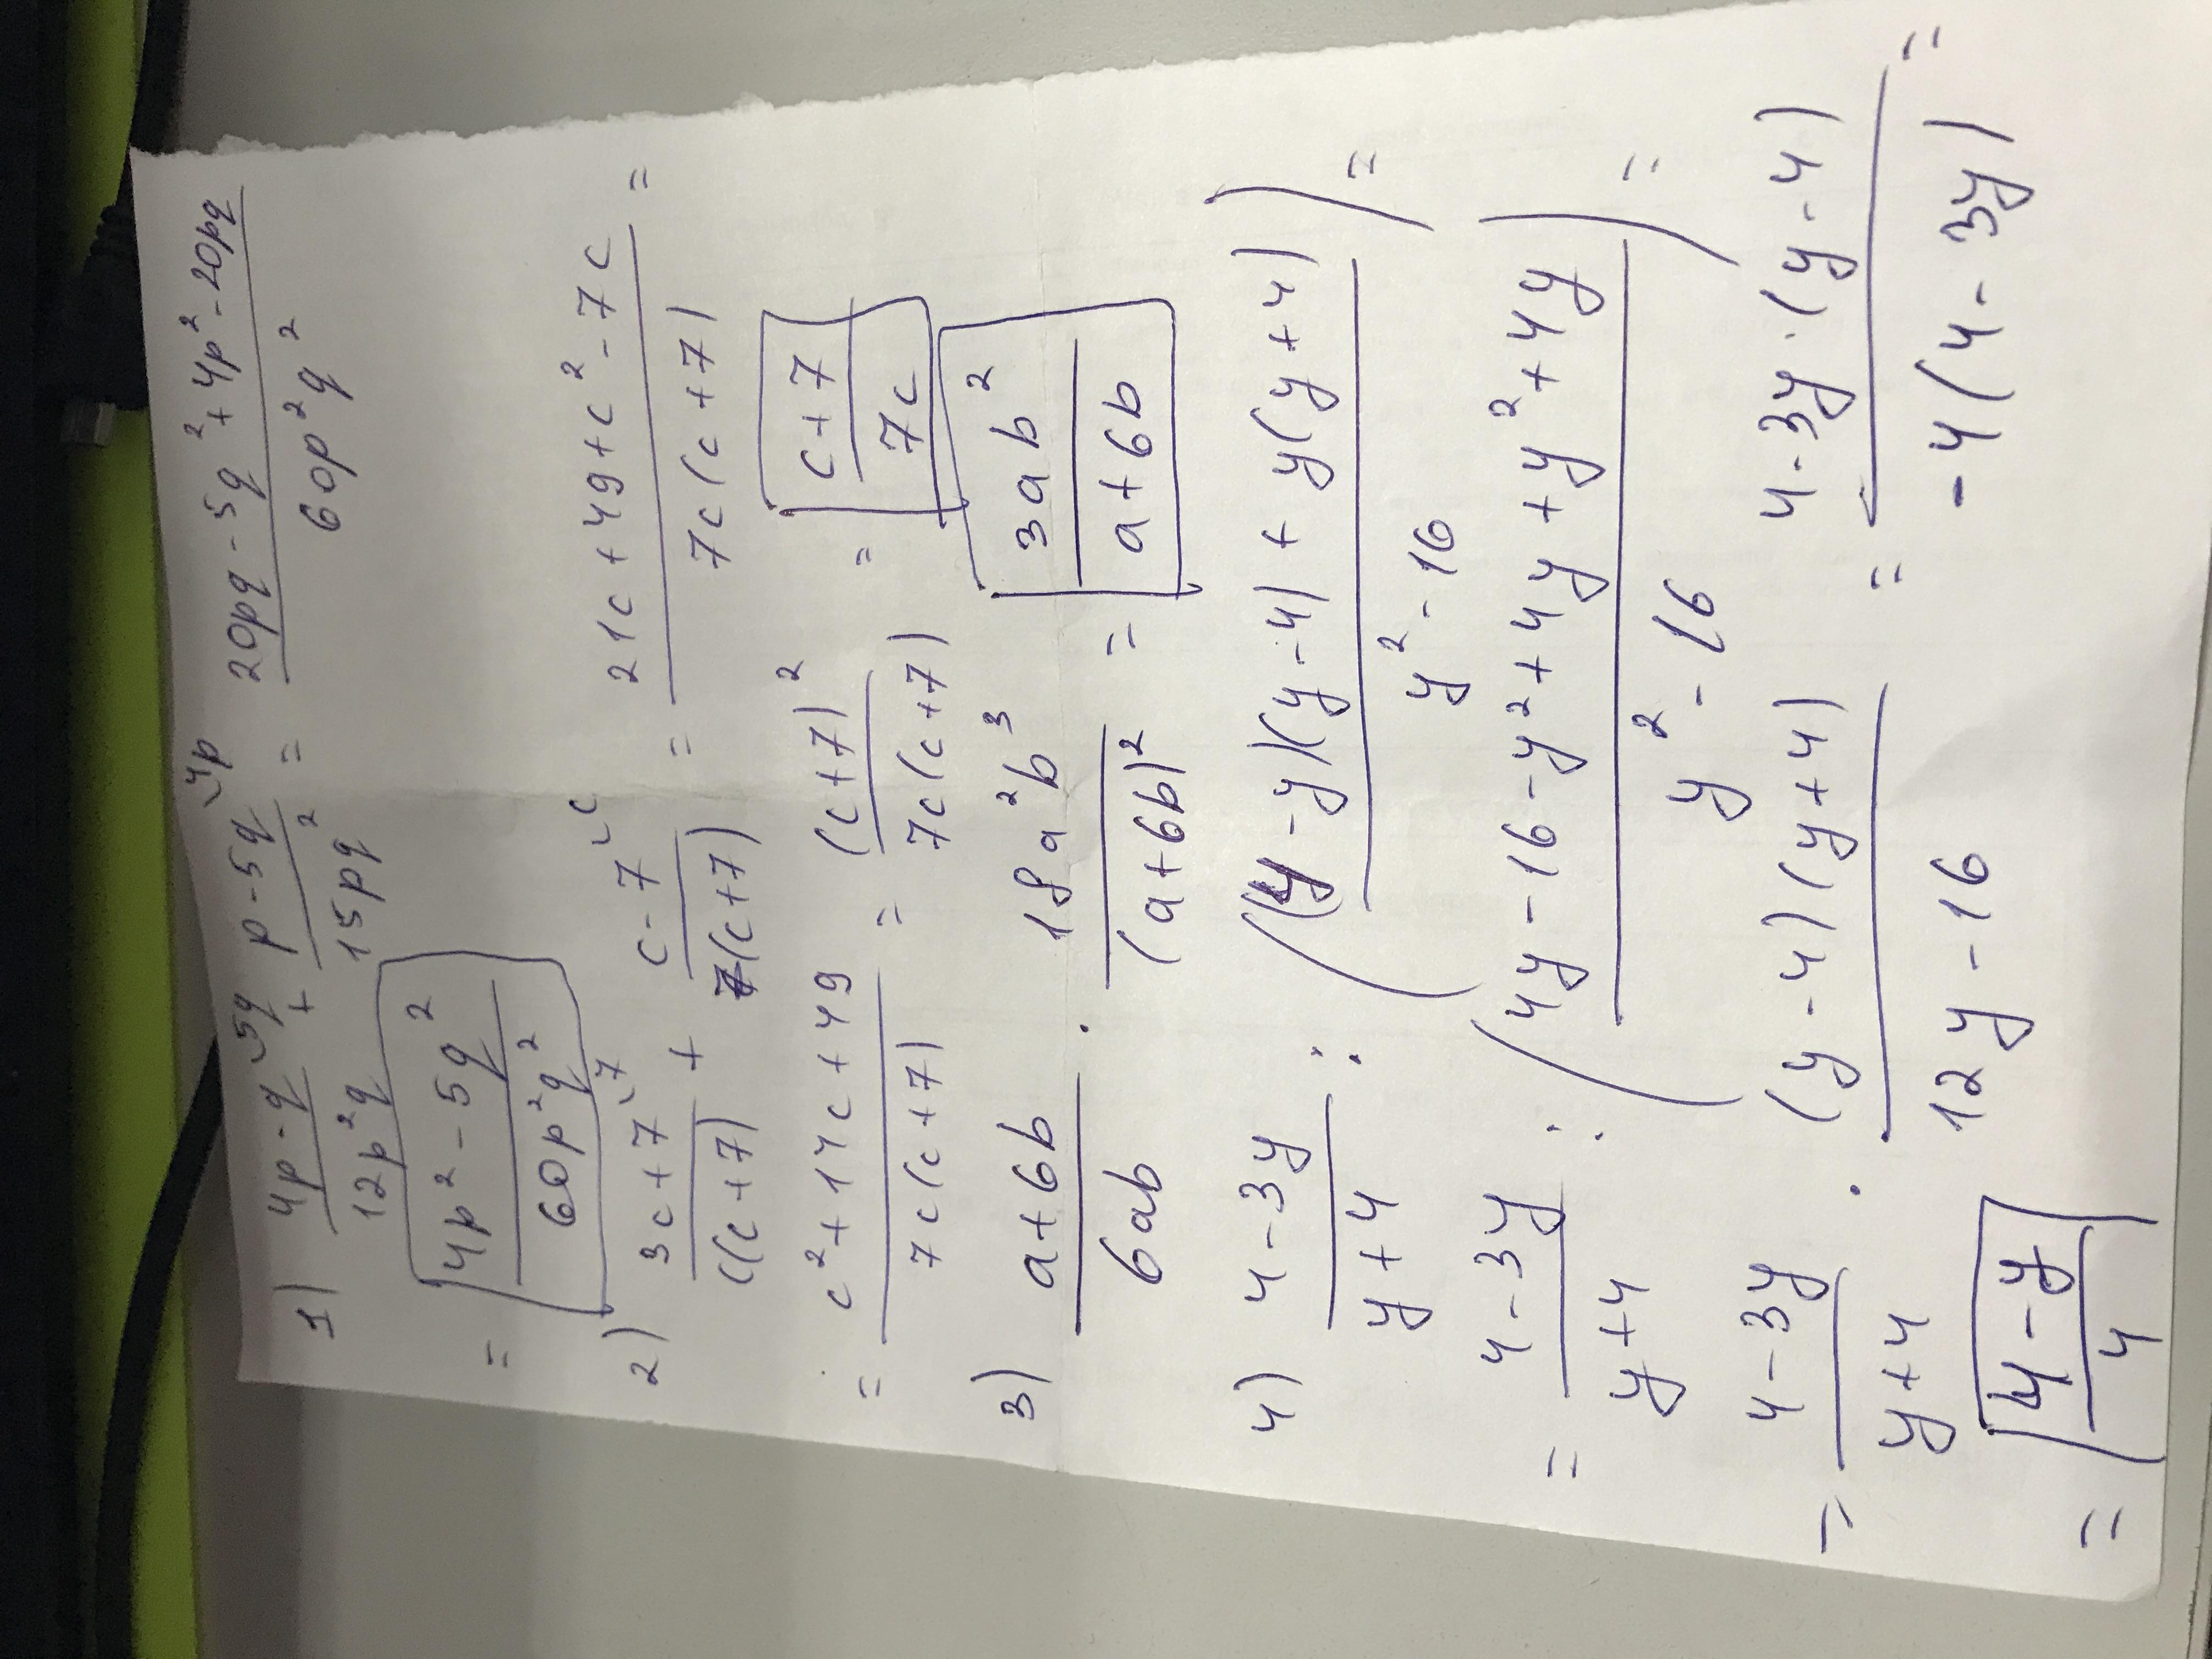 1) (4p - q)/(12p²q) ^5q + (p - 5q)/(15pq²) ^4p = (20pq - 5q² + 4p² - 20pq)/(60p²q²)
= (4p² - 5q²)/(60p²q²)
2) (3c + 7)/(c(c + 7)) ^7 + (c - 7)/(7(c + 7)) ^c = (21c + 49 + c² - 7c)/(7c(c + 7)) =
= (c² + 14c + 49)/(7c(c + 7)) = (c + 7)²/(7c(c + 7)) = (c + 7)/(7c)
3) (a + 6b)/(6ab) · (18a²b³)/((a + 6b)²) = (3ab²)/(a + 6b)
4) (4 - 3y)/(y + 4) : (((4 - y)(y - 4) + y(y + 4))/(y² - 16)) =
= (4 - 3y)/(y + 4) : ((4y - 16 - y² + 4y + y² + 4y)/(y² - 16)) =
= (4 - 3y)/(y + 4) · ((y - 4)(y + 4))/(12y - 16) = (4 - 3y · (y - 4))/(-4(4 - 3y)) =
= (4 - y)/4